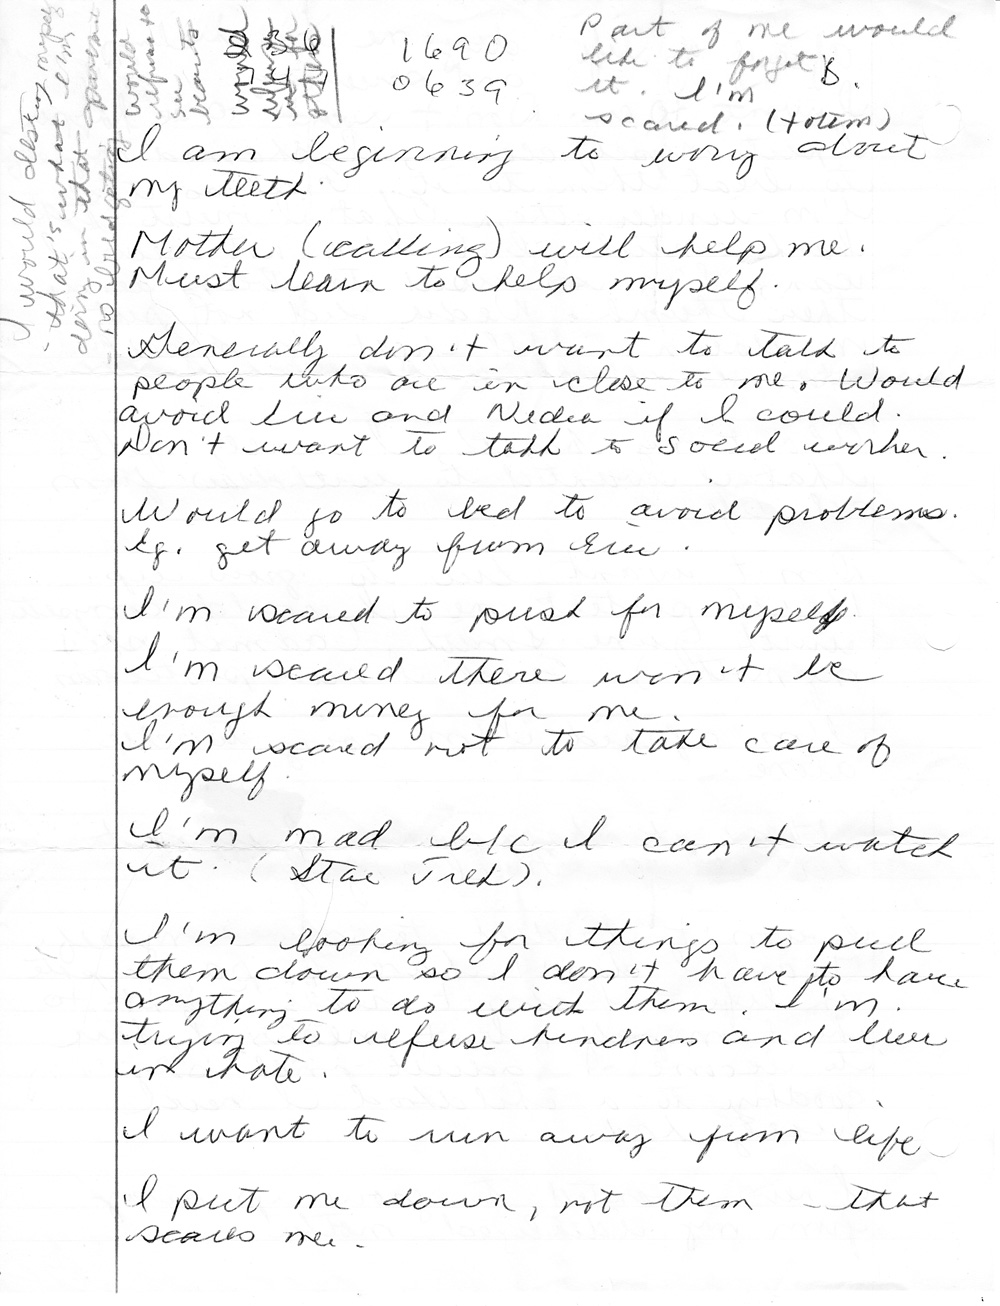 I would destroy myself
- that's what I'm
doing in that apartment
would
refuse to
beauty
would
others
1690
0639
Part of me would
like to forget
it. I'm B.
scared. (totem)
I am beginning to worry about
my teeth.
Mother (calling) will help me.
Must learn to help myself.
Generally don't want to talk to
people who are in close to me. Would
avoid and if I could.
Don't want to talk to social worker.
Would go to bed to avoid problems.
Eg. get away from Eric.
I'm scared to push for myself.
I'm scared there won't be
enough money for me.
I'm scared not to take care of
myself.
I'm mad b/c I can't watch
it. (Star Trek).
I'm looking for things to put
them down so I don't have to have
anything to do with them. I'm
trying to refuse kindness and live
in hate.
I want to run away from life
I put me down, not them - that
scares me.